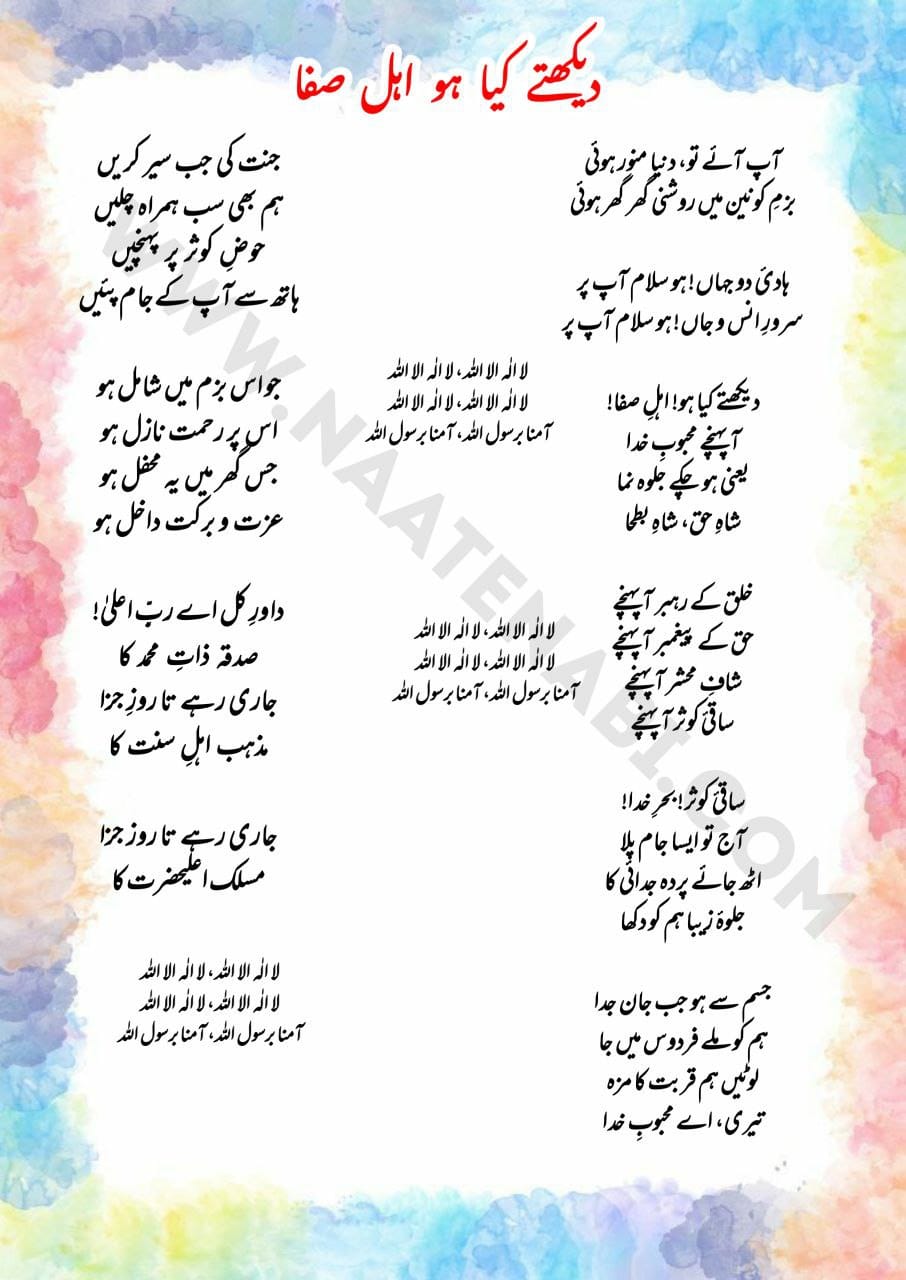 دیکھتے کیا ہو اہل صفا
آپ آئے تو، دنیا منور ہوئی
بزمِ کونین میں روشنی گھر گھر ہوئی
ہادئ دو جہاں! ہو سلام آپ پر
سرورِ انس و جاں! ہو سلام آپ پر
دیکھتے کیا ہو! اہلِ صفا!
آپہنچے محبوبِ خدا
یعنی ہو چکے جلوہ نما
شاہِ حق، شاہِ بطحا
خلق کے رہبر آپہنچے
حق کے پیغمبر آپہنچے
شافِ محشر آپہنچے
ساقئ کوثر آپہنچے
ساقئ کوثر! بحرِ خدا!
آج تو ایسا جام پلا
اٹھ جائے پردہ جدائی کا
جلوۂ زیبا ہم کو دکھا
جسم سے ہو جب جان جدا
ہم کو ملے فردوس میں جا
لوٹیں ہم قربت کا مزہ
تیری، اے محبوبِ خدا
لا الٰہ الا اللہ، لا الٰہ الا اللہ
لا الٰہ الا اللہ، لا الٰہ الا اللہ
آمنا برسول اللہ، آمنا برسول اللہ
لا الٰہ الا اللہ، لا الٰہ الا اللہ
لا الٰہ الا اللہ، لا الٰہ الا اللہ
آمنا برسول اللہ، آمنا برسول اللہ
جنت کی جب سیر کریں
ہم بھی سب ہمراہ چلیں
حوضِ کوثر پر پہنچیں
ہاتھ سے آپ کے جام پئیں
جو اس بزم میں شامل ہو
اس پر رحمت نازل ہو
جس گھر میں یہ محفل ہو
عزت و برکت داخل ہو
داورِ کل اے ربِّ اعلیٰ!
صدقہ ذاتِ محمد کا
جاری رہے تا روزِ جزا
مذہب اہلِ سنت کا
جاری رہے تا روز جزا
مسلک اعلیحضرت کا
لا الٰہ الا اللہ، لا الٰہ الا اللہ
لا الٰہ الا اللہ، لا الٰہ الا اللہ
آمنا برسول اللہ، آمنا برسول اللہ
WWW.NAATENABI.COM